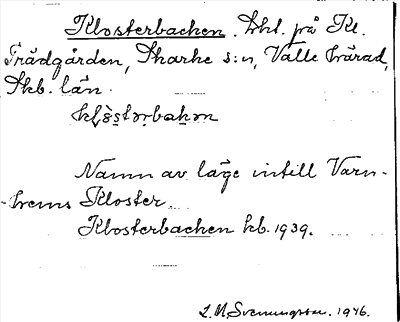 Klosterbacken. Lht. på Kl.
Trädgården, Skarke s:n, Valle härad,
Skb. län.
Namn av läge intill Varn-
-hems Kloster.
Klosterbacken kb. 1939.
L.M. Svenungsson. 1946.